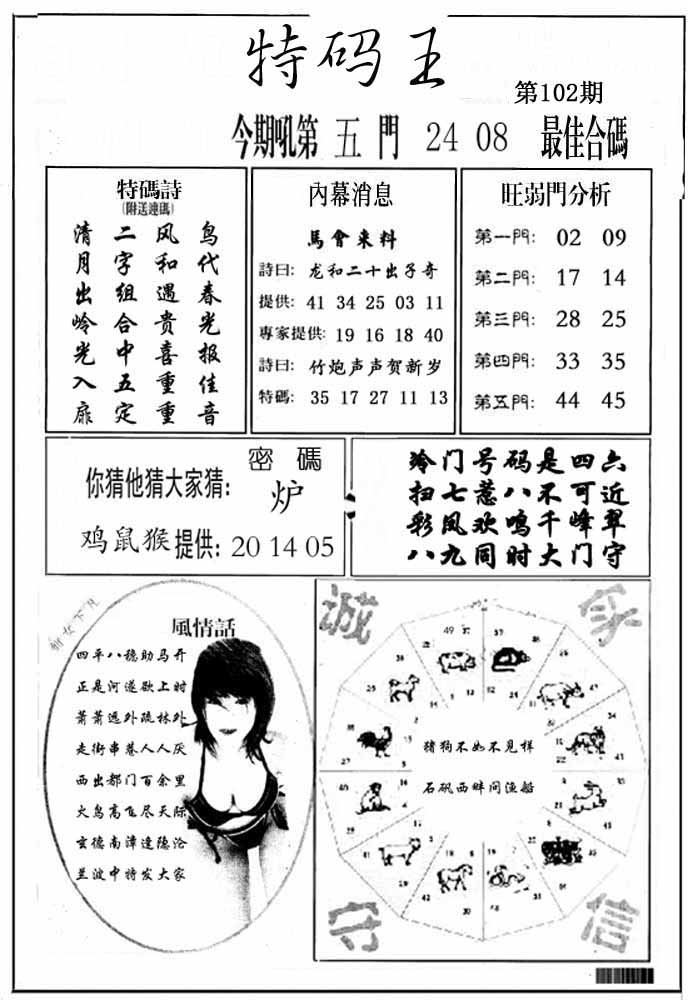 特码王
第102期
今期吼第 五 門 24 08 最佳合碼
特碼詩
(附送連碼)
鸟代春光报佳音
风和遇贵喜重重
二字组合中五定
清月出岭光入扉
內幕消息
馬會來料
詩曰: 龙和二十出子奇
提供: 41 34 25 03 11
專家提供: 19 16 18 40
詩曰: 竹炮声声贺新岁
特碼: 35 17 27 11 13
旺弱門分析
第一門: 02 09
第二門: 17 14
第三門: 28 25
第四門: 33 35
第五門: 44 45
密碼
你猜他猜大家猜: 炉
鸡鼠猴 提供: 20 14 05
冷门号码是四六
扫七惹八不可近
彩凤欢鸣千峰翠
八九同时大门守
風情話
四平八稳助马开
正是河遂歇上时
萧萧远外疏林外
走街串巷人人厌
西出都门百余里
大鸟高飞尽天际
玄德南漳逢隐沦
兰波中特发大家
诚
家
猪狗不如不见祥
石矶西畔问渔船
守
信